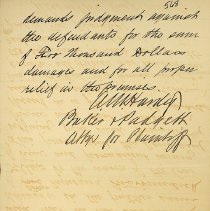 563
demands judgment against
the defendants for the sum
of Five Thousand Dollars
damages and for all proper
relief in the premises.
Baker & Padgett
Attys for Plaintiff